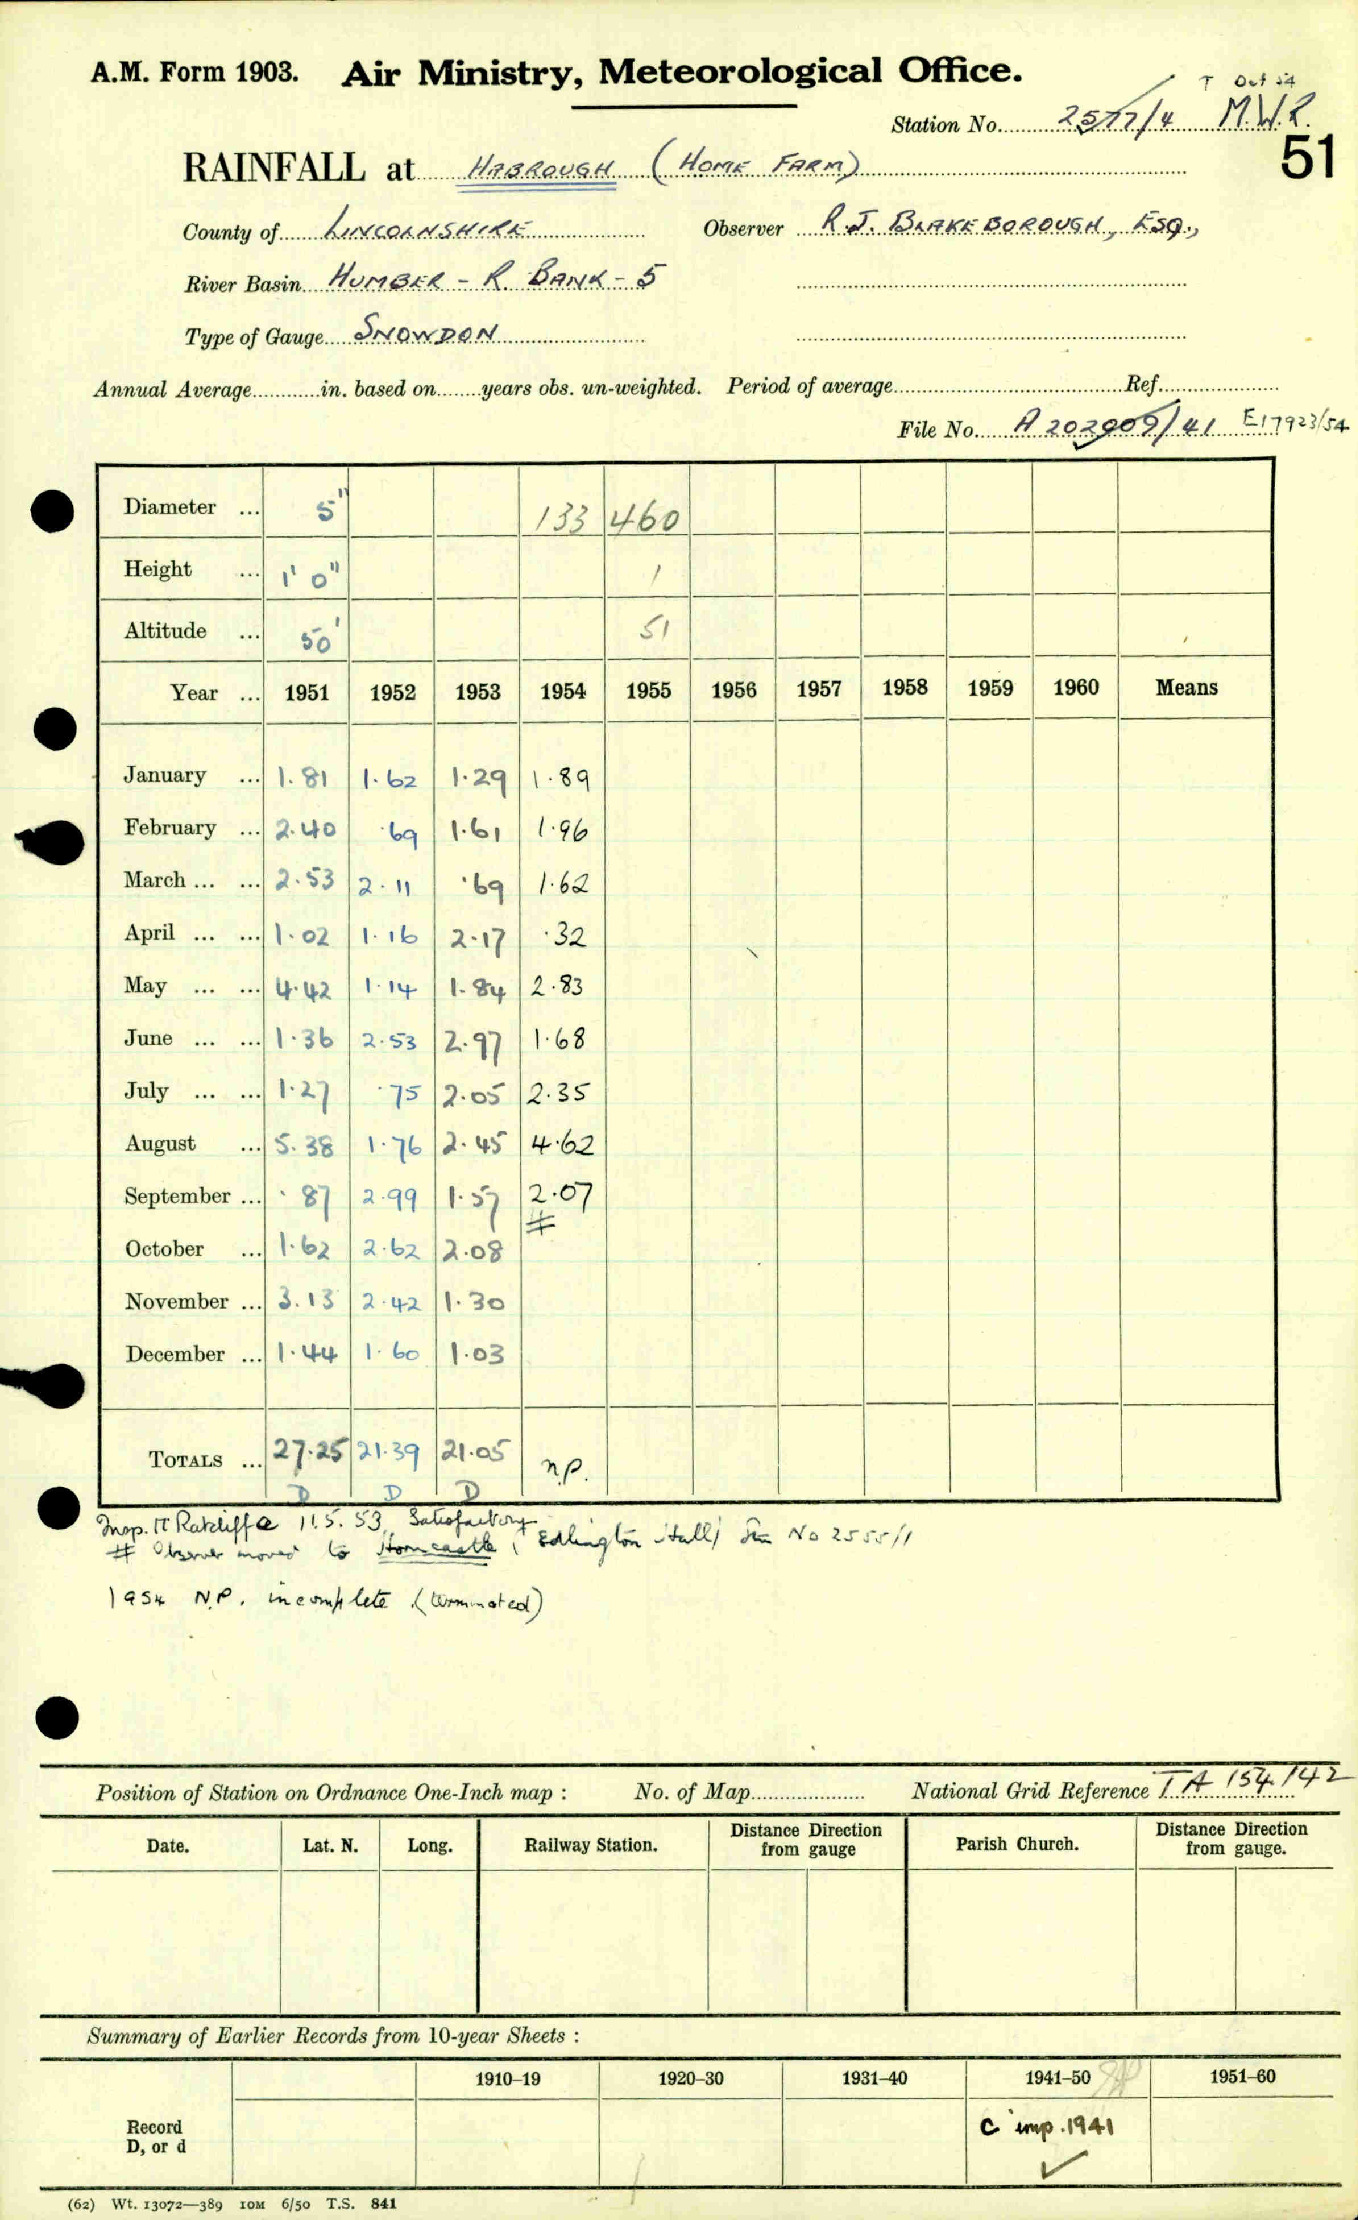 A.M. Form 1903. Air Ministry, Meteorological Office.
T Oct 54
Station No. 2577/4 M.W.R.
51
RAINFALL at HABROUGH (HOME FARM)
County of LINCOLNSHIRE Observer R.J. BLAKEBOROUGH, ESQ.,
River Basin HUMBER - R. BANK - 5
Type of Gauge SNOWDON
Annual Average in. based on years obs. un-weighted. Period of average Ref.
File No. A 202909/41 E17923/54
Diameter ... 5" 133 460
Height ... 1' 0" 1
Altitude ... 50' 51
Year ... 1951 1952 1953 1954 1955 1956 1957 1958 1959 1960 Means
January ... 1.81 1.62 1.29 1.89
February ... 2.40 .69 1.61 1.96
March ... ... 2.53 2.11 .69 1.62
April ... ... 1.02 1.16 2.17 .32
May ... ... 4.42 1.14 1.84 2.83
June ... ... 1.36 2.53 2.97 1.68
July ... ... 1.27 .75 2.05 2.35
August ... 5.38 1.76 2.45 4.62
September ... .87 2.99 1.57 2.07
#
October ... 1.62 2.62 2.08
November ... 3.13 2.42 1.30
December ... 1.44 1.60 1.03
TOTALS ... 27.25 21.39 21.05 n.p.
D D D
Insp. Ratcliffe 11.5.53 Satisfactory
# Observer moved to Horncastle (Edlington Hall) Stn No 2555/1
1954 N.P. incomplete (terminated)
Position of Station on Ordnance One-Inch map : No. of Map National Grid Reference TA 154/142
Date. Lat. N. Long. Railway Station. Distance from gauge Direction Parish Church. Distance from gauge. Direction
Summary of Earlier Records from 10-year Sheets :
1910–19 1920–30 1931–40 1941–50 1951–60
Record
D, or d
C imp. 1941
(62) Wt. 13072—389 10M 6/50 T.S. 841